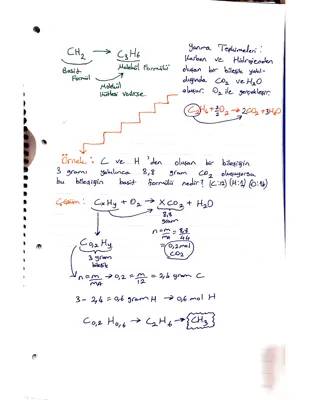 CH2 → C3H6
Basit Formül
Molekül Formülü
Molekül kütlesi verilirse
Yanma Tepkimeleri:
Karbon ve Hidrojenden
oluşan bir bileşik yakıl-
dığında CO2 ve H2O
oluşur. O2 ile gerçekleşir.
C2H6 + 7/2 O2 → 2CO2 + 3H2O
Örnek: C ve H 'den oluşan bir bileşiğin
3 gramı yakılınca 8,8 gram CO2 oluşuyorsa
bu bileşiğin basit formülü nedir? (C:12) (H:1) (O:16)
Çözüm: CxHy + O2 → XCO2 + H2O
8,8 gram
n = m/MA = 8,8/44
= 0,2 mol CO2
C0,2Hy
3 gram
bileşik
n = m/MA → 0,2 = m/12 = 2,4 gram C
3 - 2,4 = 0,6 gram H → 0,6 mol H
C0,2 H0,6 → C2H6 → CH3